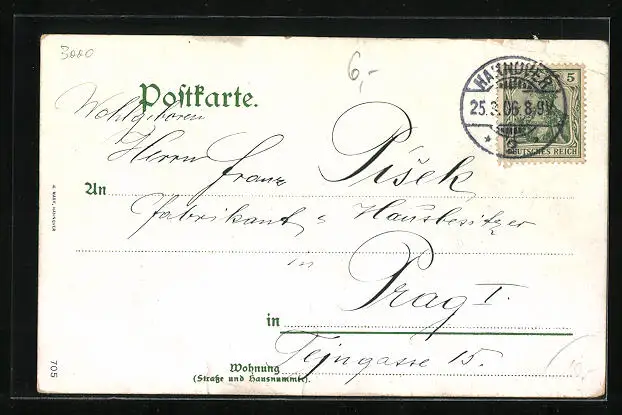 3000
6,-
Postkarte.
HANNOVER
25.3.06.8-9V.
* 2 *
5
DEUTSCHES REICH
Wohlgeboren
Herrn Franz Pišek
An
Fabrikant & Hausbesitzer
in
Prag I.
in
Teingasse 15.
Wohnung
(Straße und Hausnummer).
705